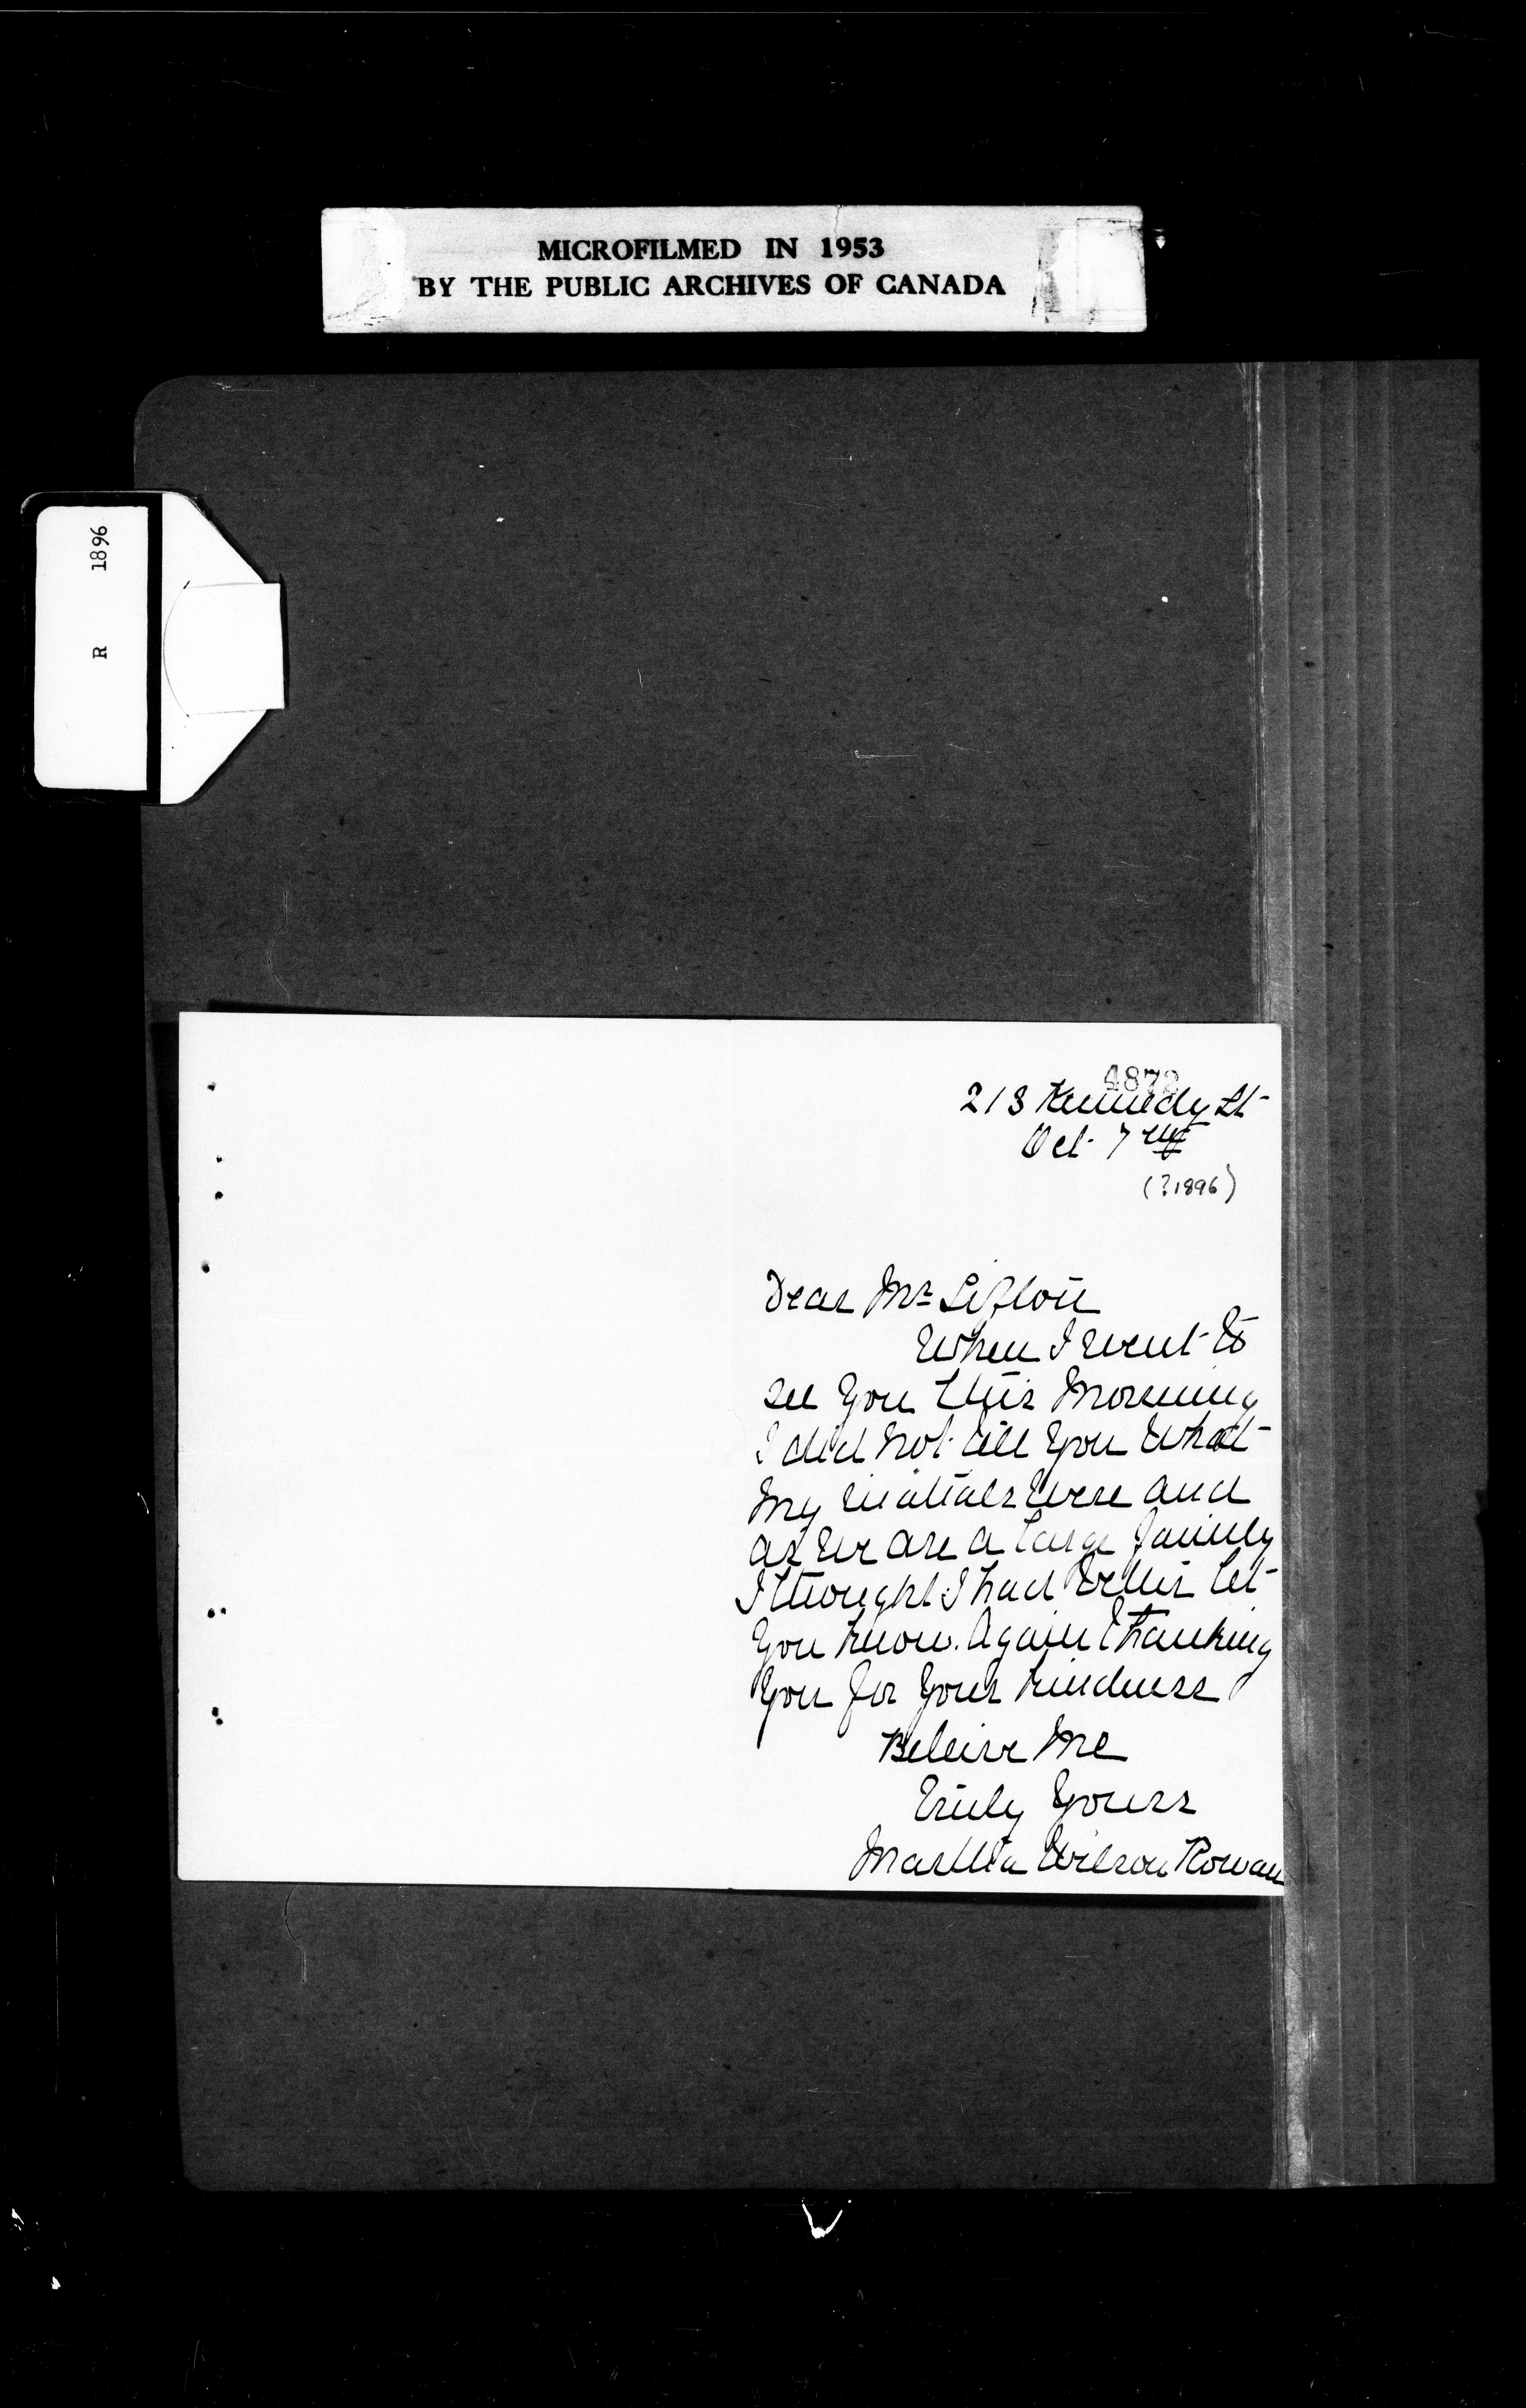 MICROFILMED IN 1953
BY THE PUBLIC ARCHIVES OF CANADA
R 1896
213 Kennedy St
Oct 7th
(?1896)
Dear Mr Sifton
When I went to
see you this Morning
I did not tell you what
My initials were and
as we are a large family
I thought I had better let
you know. Again thanking
you for your kindness
Beleive Me
Truly Yours
Martha Wilson Rowan